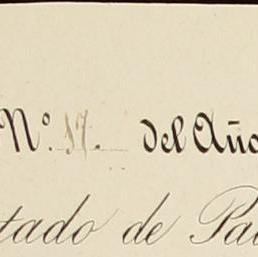 Nº 17. del Año
tado de Pa